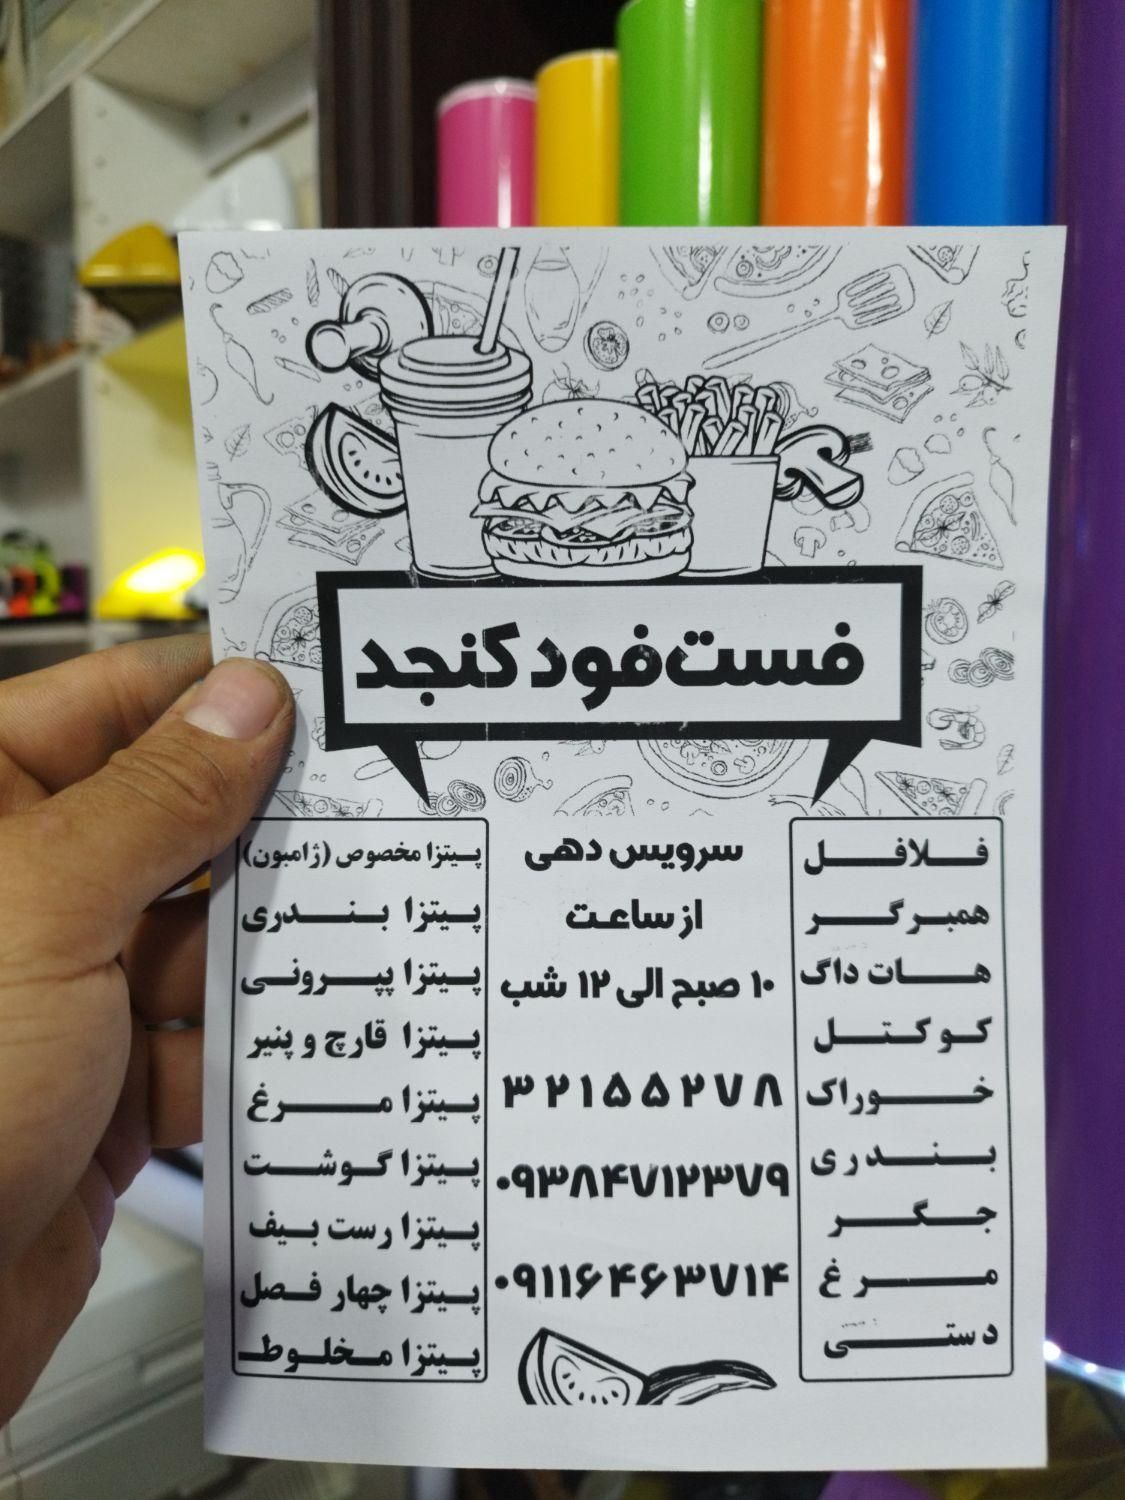 فست‌فود کنجد
فلافل
همبرگر
هات داگ
کوکتل
خوراک
بندری
جگر
مرغ
دستی
سرویس دهی
از ساعت
۱۰ صبح الی ۱۲ شب
۳۲۱۵۵۲۷۸
۰۹۳۸۴۷۱۲۳۷۹
۰۹۱۱۶۴۶۳۷۱۴
پیتزا مخصوص (ژامبون)
پیتزا بندری
پیتزا پپرونی
پیتزا قارچ و پنیر
پیتزا مرغ
پیتزا گوشت
پیتزا رست بیف
پیتزا چهار فصل
پیتزا مخلوط